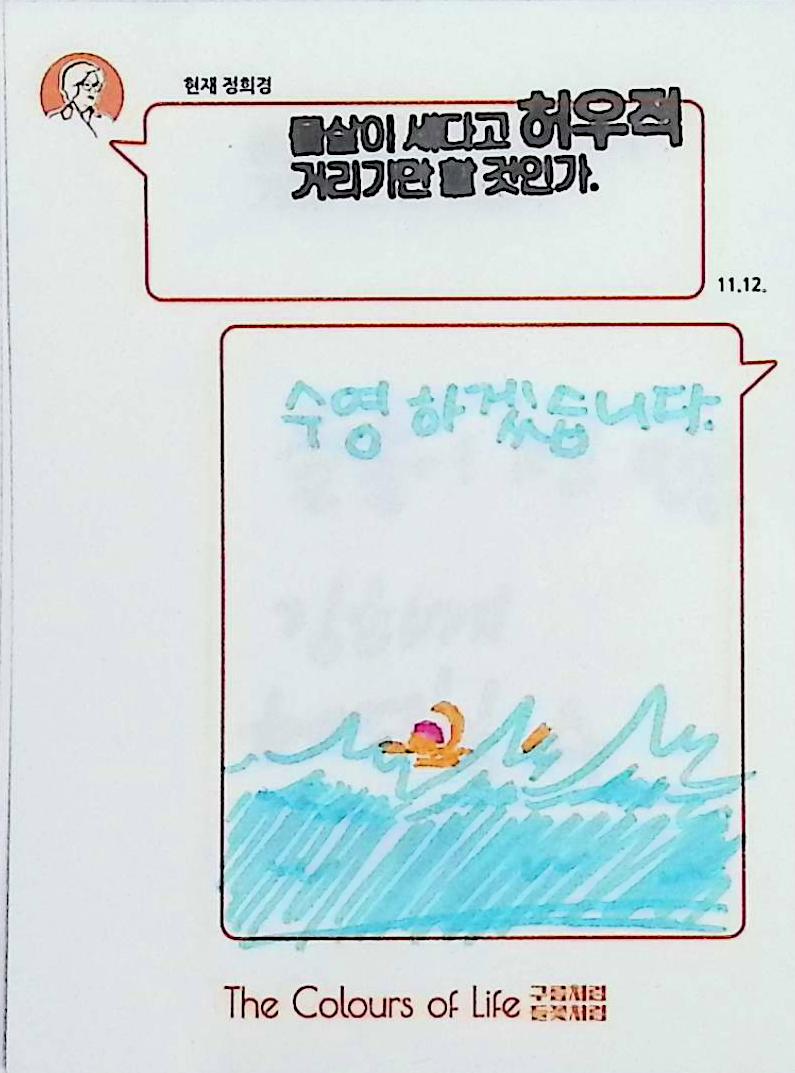 현재 정희경
물살이 세다고 허우적
거리기만 할 것인가.
11.12.
수영 하겠습니다.
The Colours of Life 구름처럼
들꽃처럼